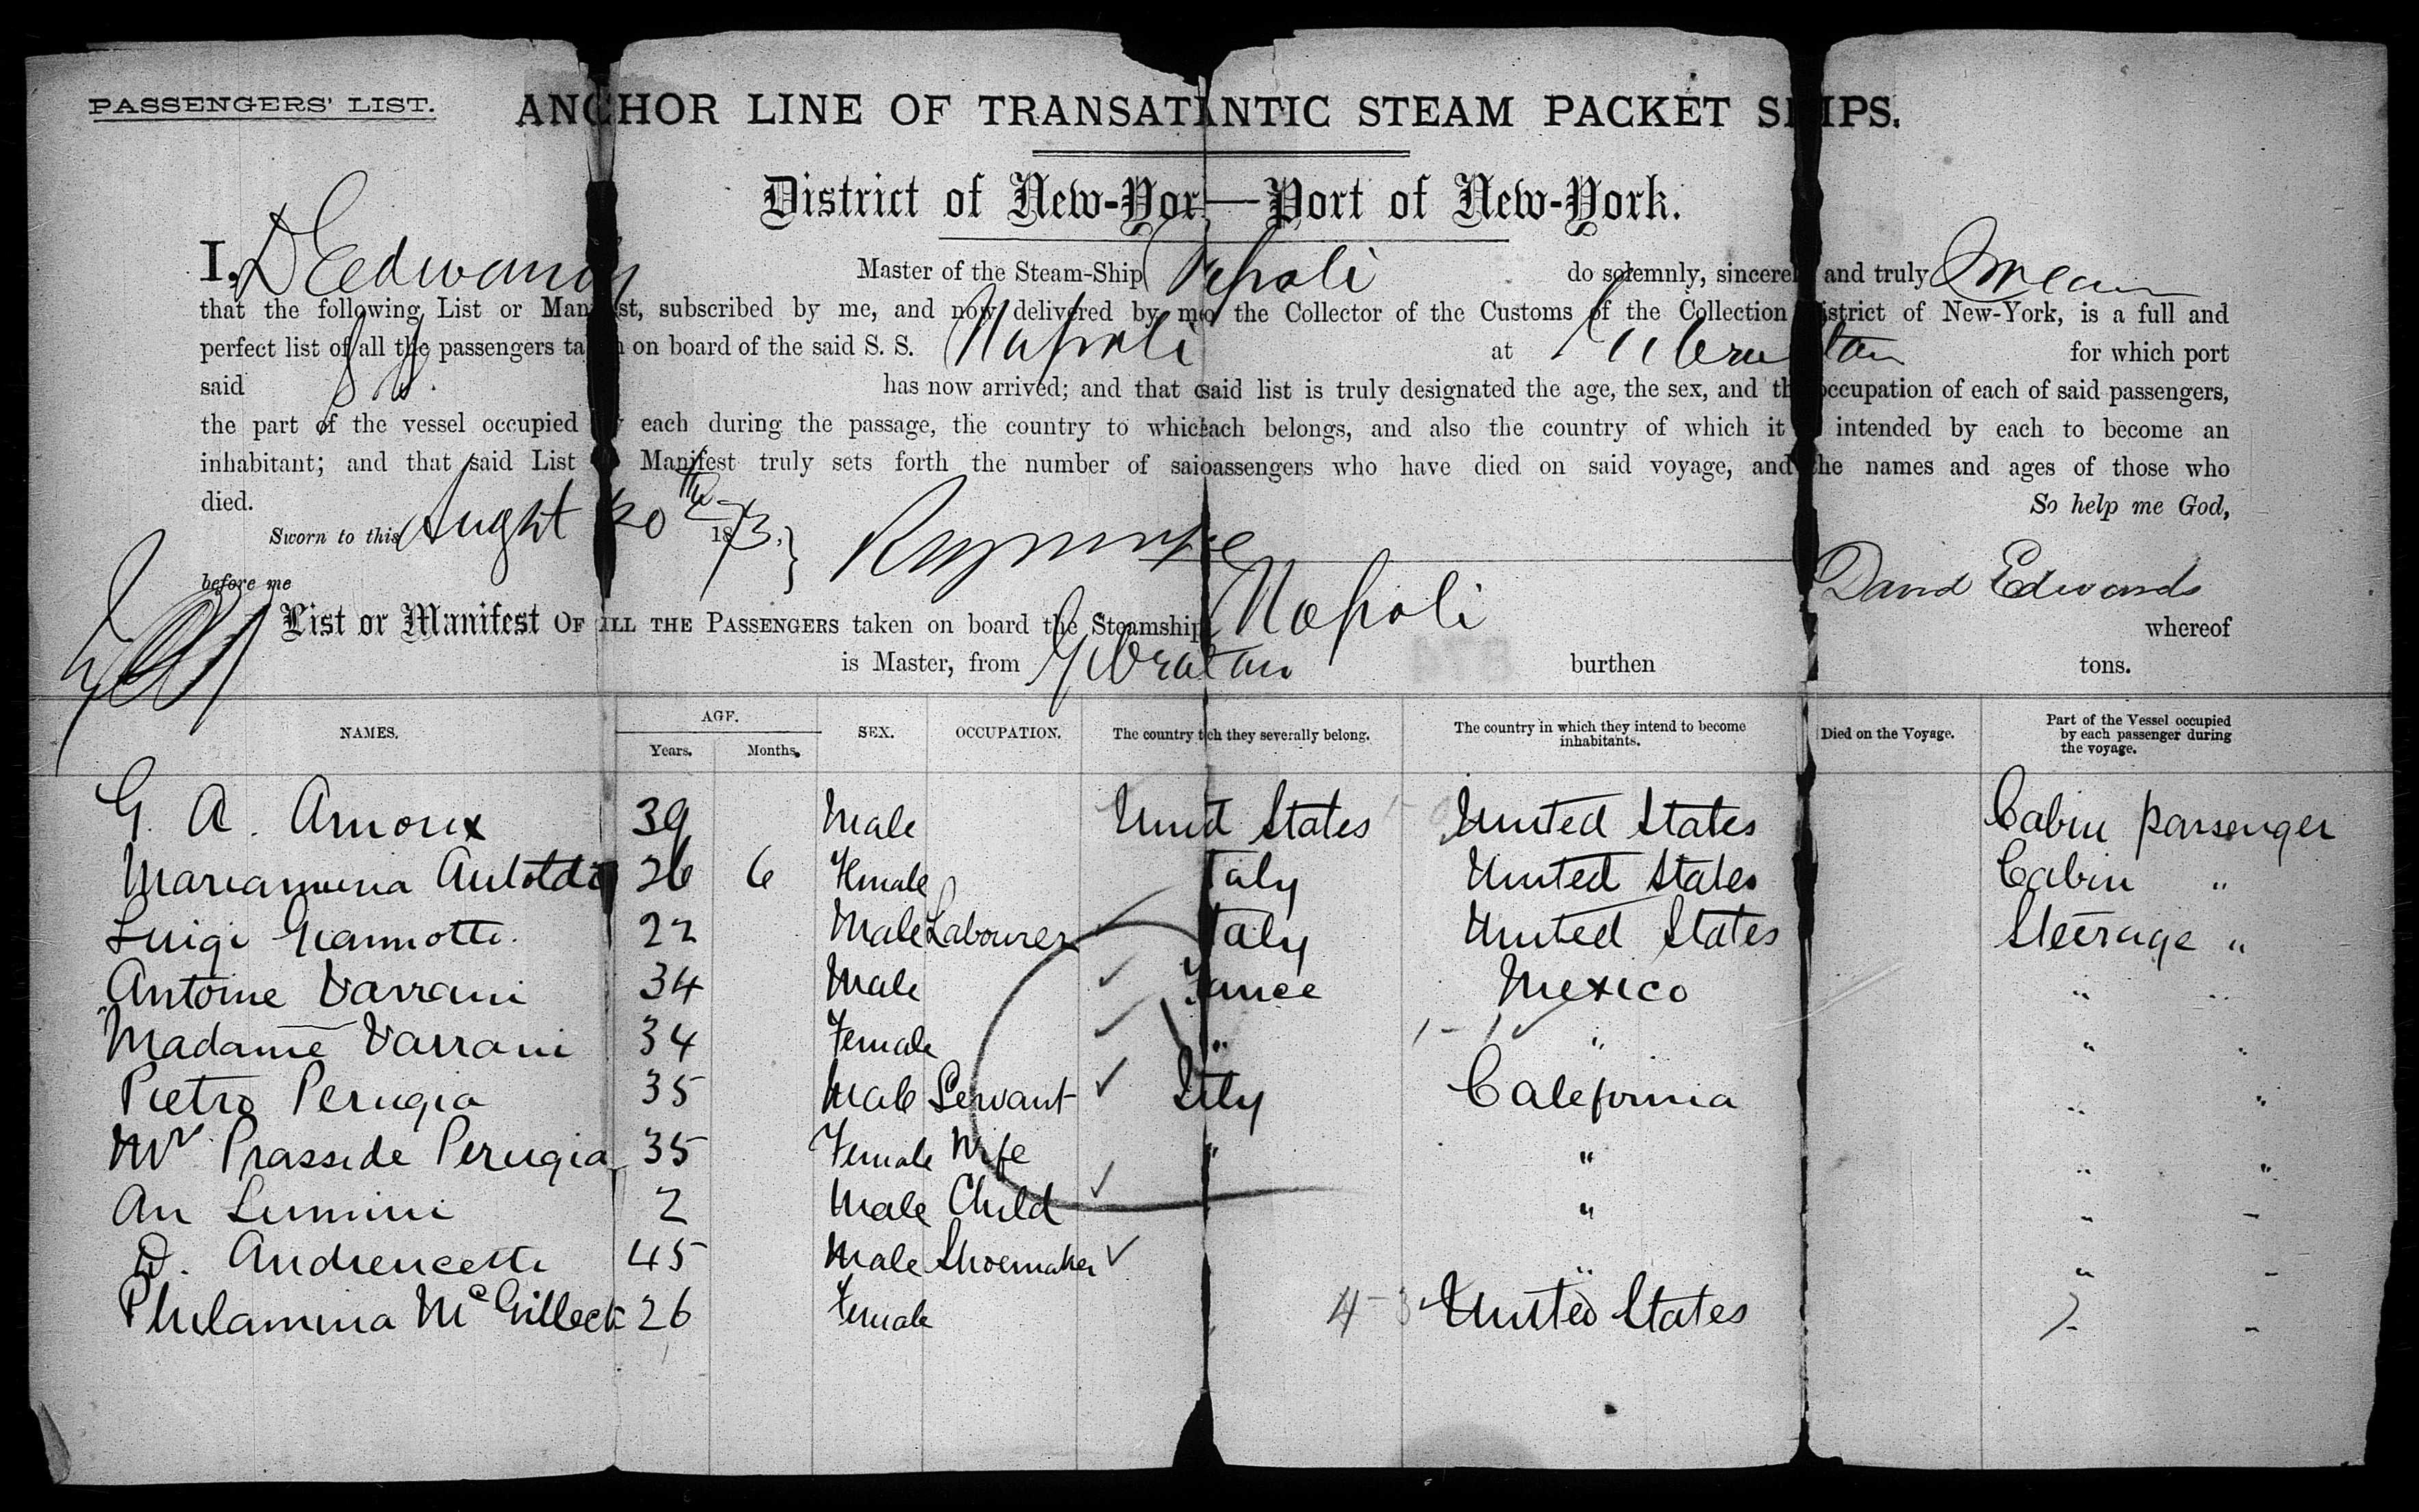 PASSENGERS' LIST.
ANCHOR LINE OF TRANSATLANTIC STEAM PACKET SHIPS.
District of New-York—Port of New-York.
I, D Edwards Master of the Steam-Ship Napoli do solemnly, sincerely and truly Swear
that the following List or Manifest, subscribed by me, and now delivered by me to the Collector of the Customs of the Collection District of New-York, is a full and
perfect list of all the passengers taken on board of the said S. S. Napoli at Gibraltar for which port
said has now arrived; and that said list is truly designated the age, the sex, and the occupation of each of said passengers,
the part of the vessel occupied by each during the passage, the country to which each belongs, and also the country of which it is intended by each to become an
inhabitant; and that said List or Manifest truly sets forth the number of said passengers who have died on said voyage, and the names and ages of those who
died. So help me God,
Sworn to this Aught 20th 1873.
before me David Edwards
List or Manifest OF ALL THE PASSENGERS taken on board the Steamship Napoli whereof
is Master, from Gibraltar burthen tons.
NAMES. AGE. Years. Months. SEX. OCCUPATION. The country to which they severally belong. The country in which they intend to become inhabitants. Died on the Voyage. Part of the Vessel occupied by each passenger during the voyage.
G. A. Arnoux 39 Male United States United States Cabin passenger
Mariannina Autoldi 26 6 Female Italy United States Cabin "
Luigi Giannotti. 22 Male Labourer Italy United States Steerage "
Antoine Varrani 34 Male France Mexico " "
Madame Varrani 34 Female " " " "
Pietro Perugia 35 Male Servant Italy California " "
Mrs Prasside Perugia 35 Female Wife " " " "
An Lumini 2 Male Child " " "
D. Andreucetti 45 Male Shoemaker " " "
Philamina McGilleck 26 Female United States "